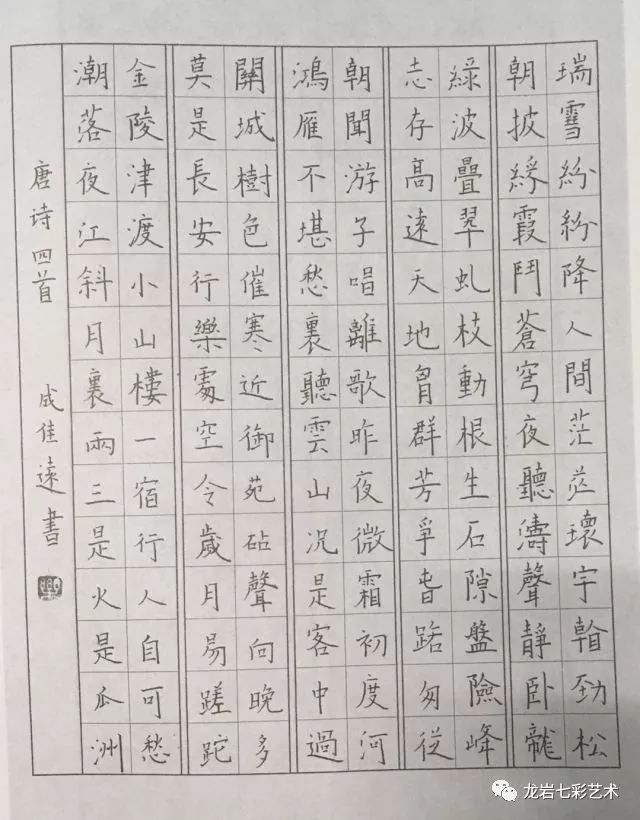 瑞雪紛紛降人間茫茫環宇勁松
朝披綵霞鬥蒼穹夜聽濤聲靜卧龍
綠波疊翠虬枝動根生石隙盤險峰
志存高遠天地群芳爭春匆從
朝聞游子唱離歌昨夜微霜初度河
鴻雁不堪愁裏聽雲山況是客中過
關城樹色催寒近御苑砧聲向晚多
莫是長安行樂處空令歲月易蹉跎
金陵津渡小山樓一宿行人自可愁
潮落夜江斜月裏兩三是火是瓜洲
唐诗四首 成佳遠書
龙岩七彩艺术